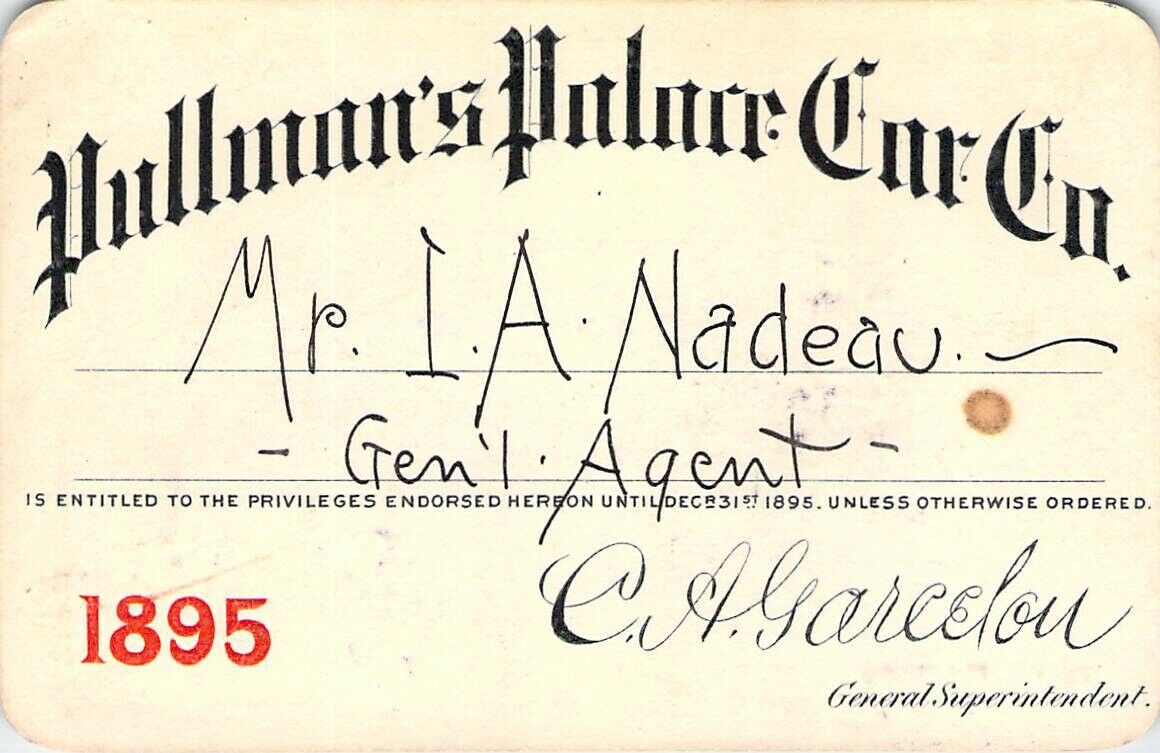 Pullman's Palace Car Co.
Mr. I. A. Nadeau.
- Gen'l. Agent -
IS ENTITLED TO THE PRIVILEGES ENDORSED HEREON UNTIL DECR 31ST 1895. UNLESS OTHERWISE ORDERED.
1895
C. A. Garcelon
General Superintendent.